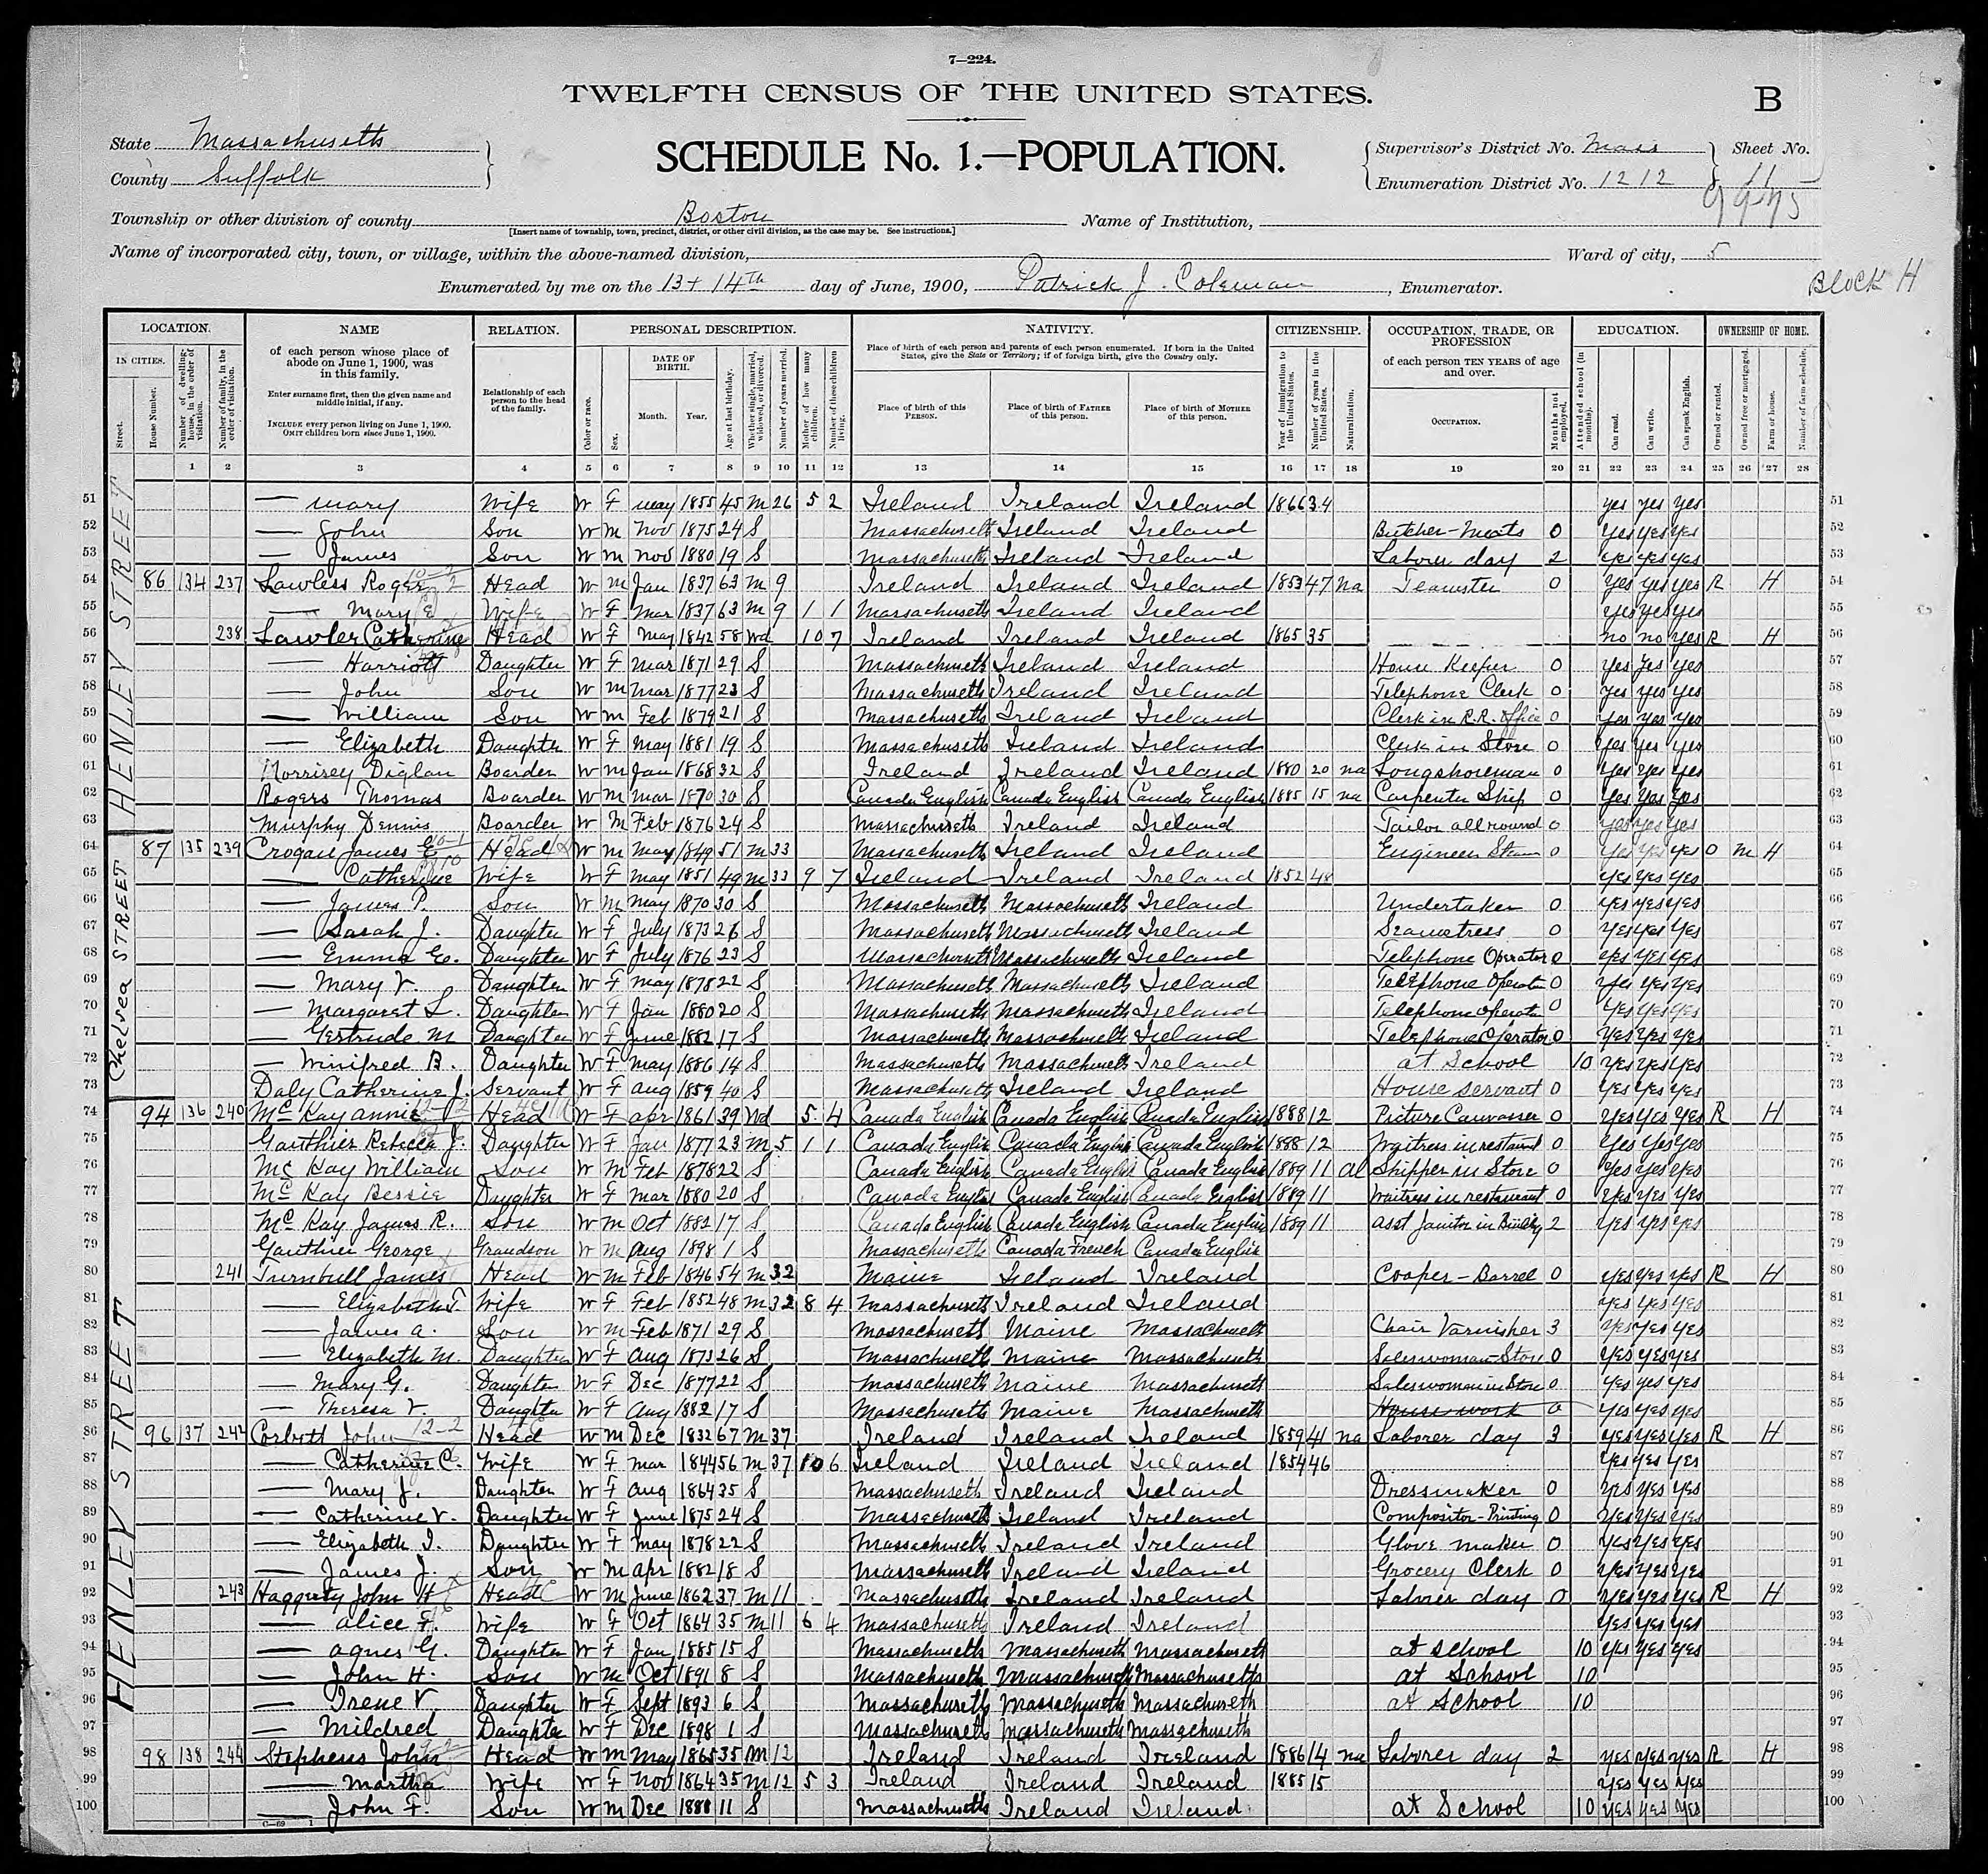 7—224.
TWELFTH CENSUS OF THE UNITED STATES.
B
State Massachusetts
County Suffolk
SCHEDULE No. 1.—POPULATION.
Supervisor's District No. Mass Sheet No.
Enumeration District No. 1212 11
Township or other division of county Boston Name of Institution,
[Insert name of township, town, precinct, district, or other civil division, as the case may be. See instructions.]
Name of incorporated city, town, or village, within the above-named division, Ward of city, 5
Enumerated by me on the 13 + 14th day of June, 1900, Patrick J. Coleman, Enumerator.
Block H
LOCATION. NAME RELATION. PERSONAL DESCRIPTION. NATIVITY. CITIZENSHIP. OCCUPATION, TRADE, OR PROFESSION EDUCATION. OWNERSHIP OF HOME.
IN CITIES.
Street.
House Number.
Number of dwelling-house, in the order of visitation.
Number of family, in the order of visitation.
of each person whose place of abode on June 1, 1900, was in this family.
Enter surname first, then the given name and middle initial, if any.
INCLUDE every person living on June 1, 1900. OMIT children born since June 1, 1900.
Relationship of each person to the head of the family.
Color or race.
Sex.
DATE OF BIRTH.
Month. Year.
Age at last birthday.
Whether single, married, widowed, or divorced.
Number of years married.
Mother of how many children.
Number of these children living.
Place of birth of each person and parents of each person enumerated. If born in the United States, give the State or Territory; if of foreign birth, give the Country only.
Place of birth of this PERSON.
Place of birth of FATHER of this person.
Place of birth of MOTHER of this person.
Year of immigration to the United States.
Number of years in the United States.
Naturalization.
of each person TEN YEARS of age and over.
OCCUPATION.
Months not employed.
Attended school (in months).
Can read.
Can write.
Can speak English.
Owned or rented.
Owned free or mortgaged.
Farm or house.
Number of farm schedule.
1 2 3 4 5 6 7 8 9 10 11 12 13 14 15 16 17 18 19 20 21 22 23 24 25 26 27 28
HENLEY STREET
Chelsea STREET
HENLEY STREET
51 — Mary Wife W F May 1855 45 M 26 5 2 Ireland Ireland Ireland 1866 34 yes yes yes 51
52 — John Son W M Nov 1875 24 S Massachusetts Ireland Ireland Butcher-Meats 0 yes yes yes 52
53 — James Son W M Nov 1880 19 S Massachusetts Ireland Ireland Laborer day 2 yes yes yes 53
54 86 134 237 Lawless Roger Head W M Jan 1837 63 M 9 Ireland Ireland Ireland 1853 47 Na Teamster 0 yes yes yes R H 54
55 — Mary E Wife W F Mar 1837 63 M 9 1 1 Massachusetts Ireland Ireland yes yes yes 55
56 238 Lawler Catherine Head W F May 1842 58 Wd 10 7 Ireland Ireland Ireland 1865 35 no no yes R H 56
57 — Harriott Daughter W F Mar 1871 29 S Massachusetts Ireland Ireland House Keeper 0 yes yes yes 57
58 — John Son W M Mar 1877 23 S Massachusetts Ireland Ireland Telephone Clerk 0 yes yes yes 58
59 — William Son W M Feb 1879 21 S Massachusetts Ireland Ireland Clerk in R.R. office 0 yes yes yes 59
60 — Elizabeth Daughter W F May 1881 19 S Massachusetts Ireland Ireland Clerk in Store 0 yes yes yes 60
61 Morrisey Boarder W M Jan 1868 32 S Ireland Ireland Ireland 1880 20 na Longshoreman 0 yes yes yes 61
62 Rogers Thomas Boarder W M Mar 1870 30 S Canada English Canada English Canada English 1885 15 na Carpenter Ship 0 yes yes yes 62
63 Murphy Dennis Boarder W M Feb 1876 24 S Massachusetts Ireland Ireland Tailor all round 0 yes yes yes 63
64 87 135 239 Crogan James E Head W M May 1849 51 M 33 Massachusetts Ireland Ireland Engineer Steam 0 yes yes yes O M H 64
65 — Catherine Wife W F May 1851 49 M 33 9 7 Ireland Ireland Ireland 1852 48 yes yes yes 65
66 — James P. Son W M May 1870 30 S Massachusetts Massachusetts Ireland Undertaker 0 yes yes yes 66
67 — Sarah J. Daughter W F July 1873 26 S Massachusetts Massachusetts Ireland Seamstress 0 yes yes yes 67
68 — Emma E. Daughter W F July 1876 23 S Massachusetts Massachusetts Ireland Telephone Operator 0 yes yes yes 68
69 — Mary V. Daughter W F May 1878 22 S Massachusetts Massachusetts Ireland Telephone Operator 0 yes yes yes 69
70 — Margaret L. Daughter W F Jan 1880 20 S Massachusetts Massachusetts Ireland Telephone Operator 0 yes yes yes 70
71 — Gertrude M Daughter W F June 1882 17 S Massachusetts Massachusetts Ireland Telephone Operator 0 yes yes yes 71
72 — Winifred B. Daughter W F May 1886 14 S Massachusetts Massachusetts Ireland at School 10 yes yes yes 72
73 Daly Catherine J. Servant W F Aug 1859 40 S Massachusetts Ireland Ireland House servant 0 yes yes yes 73
74 94 136 240 McKay Annie Head W F Apr 1861 39 Wd 5 4 Canada English Canada English Canada English 1888 12 Picture Canvasser 0 yes yes yes R H 74
75 Gauthier Rebecca J. Daughter W F Jan 1877 23 M 5 1 1 Canada English Canada English Canada English 1888 12 Waitress in restaurant 0 yes yes yes 75
76 McKay William Son W M Feb 1878 22 S Canada English Canada English Canada English 1889 11 Al Shipper in Store 0 yes yes yes 76
77 McKay Bessie Daughter W F Mar 1880 20 S Canada English Canada English Canada English 1889 11 Waitress in restaurant 0 yes yes yes 77
78 McKay James R. Son W M Oct 1882 17 S Canada English Canada English Canada English 1889 11 asst Janitor in Buildg 2 yes yes yes 78
79 Gauthier George Grandson W M Aug 1898 1 S Massachusetts Canada French Canada English 79
80 241 Turnbull James Head W M Feb 1846 54 M 32 Maine Ireland Ireland Cooper-Barrel 0 yes yes yes R H 80
81 — Elizabeth T. Wife W F Feb 1852 48 M 32 8 4 Massachusetts Ireland Ireland yes yes yes 81
82 — James A. Son W M Feb 1871 29 S Massachusetts Maine Massachusetts Chair Varnisher 3 yes yes yes 82
83 — Elizabeth M. Daughter W F Aug 1873 26 S Massachusetts Maine Massachusetts Saleswoman-Store 0 yes yes yes 83
84 — Mary G. Daughter W F Dec 1877 22 S Massachusetts Maine Massachusetts Saleswoman in Store 0 yes yes yes 84
85 — Theresa V. Daughter W F Aug 1882 17 S Massachusetts Maine Massachusetts House work 0 yes yes yes 85
86 96 137 242 Corbett John Head W M Dec 1832 67 M 37 Ireland Ireland Ireland 1859 41 na Laborer day 3 yes yes yes R H 86
87 — Catherine C. Wife W F Mar 1844 56 M 37 10 6 Ireland Ireland Ireland 1854 46 yes yes yes 87
88 — Mary J. Daughter W F Aug 1864 35 S Massachusetts Ireland Ireland Dressmaker 0 yes yes yes 88
89 — Catherine V. Daughter W F June 1875 24 S Massachusetts Ireland Ireland Compositor-Printing 0 yes yes yes 89
90 — Elizabeth I. Daughter W F May 1878 22 S Massachusetts Ireland Ireland Glove maker 0 yes yes yes 90
91 — James J. Son W M Apr 1882 18 S Massachusetts Ireland Ireland Grocery Clerk 0 yes yes yes 91
92 243 Haggerty John H Head W M June 1862 37 M 11 Massachusetts Ireland Ireland Laborer day 0 yes yes yes R H 92
93 — Alice F. Wife W F Oct 1864 35 M 11 6 4 Massachusetts Ireland Ireland yes yes yes 93
94 — Agnes G. Daughter W F Jan 1885 15 S Massachusetts Massachusetts Massachusetts at school 10 yes yes yes 94
95 — John H. Son W M Oct 1891 8 S Massachusetts Massachusetts Massachusetts at School 10 95
96 — Irene V Daughter W F Sept 1893 6 S Massachusetts Massachusetts Massachusetts at School 10 96
97 — Mildred Daughter W F Dec 1898 1 S Massachusetts Massachusetts Massachusetts 97
98 98 138 244 Stephens John Head W M May 1865 35 M 12 Ireland Ireland Ireland 1886 14 na Laborer day 2 yes yes yes R H 98
99 — Martha Wife W F Nov 1864 35 M 12 5 3 Ireland Ireland Ireland 1885 15 yes yes yes 99
100 — John F. Son W M Dec 1888 11 S Massachusetts Ireland Ireland at School 10 yes yes yes 100